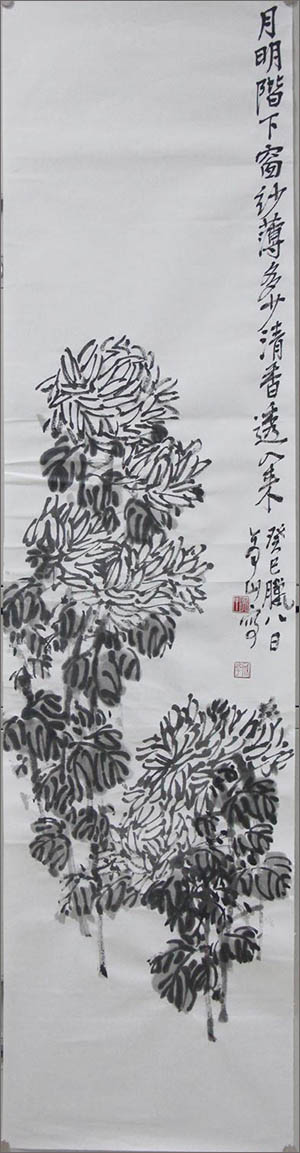 月明階下窗紗薄多少清香透入來
癸巳臘八日
山寫